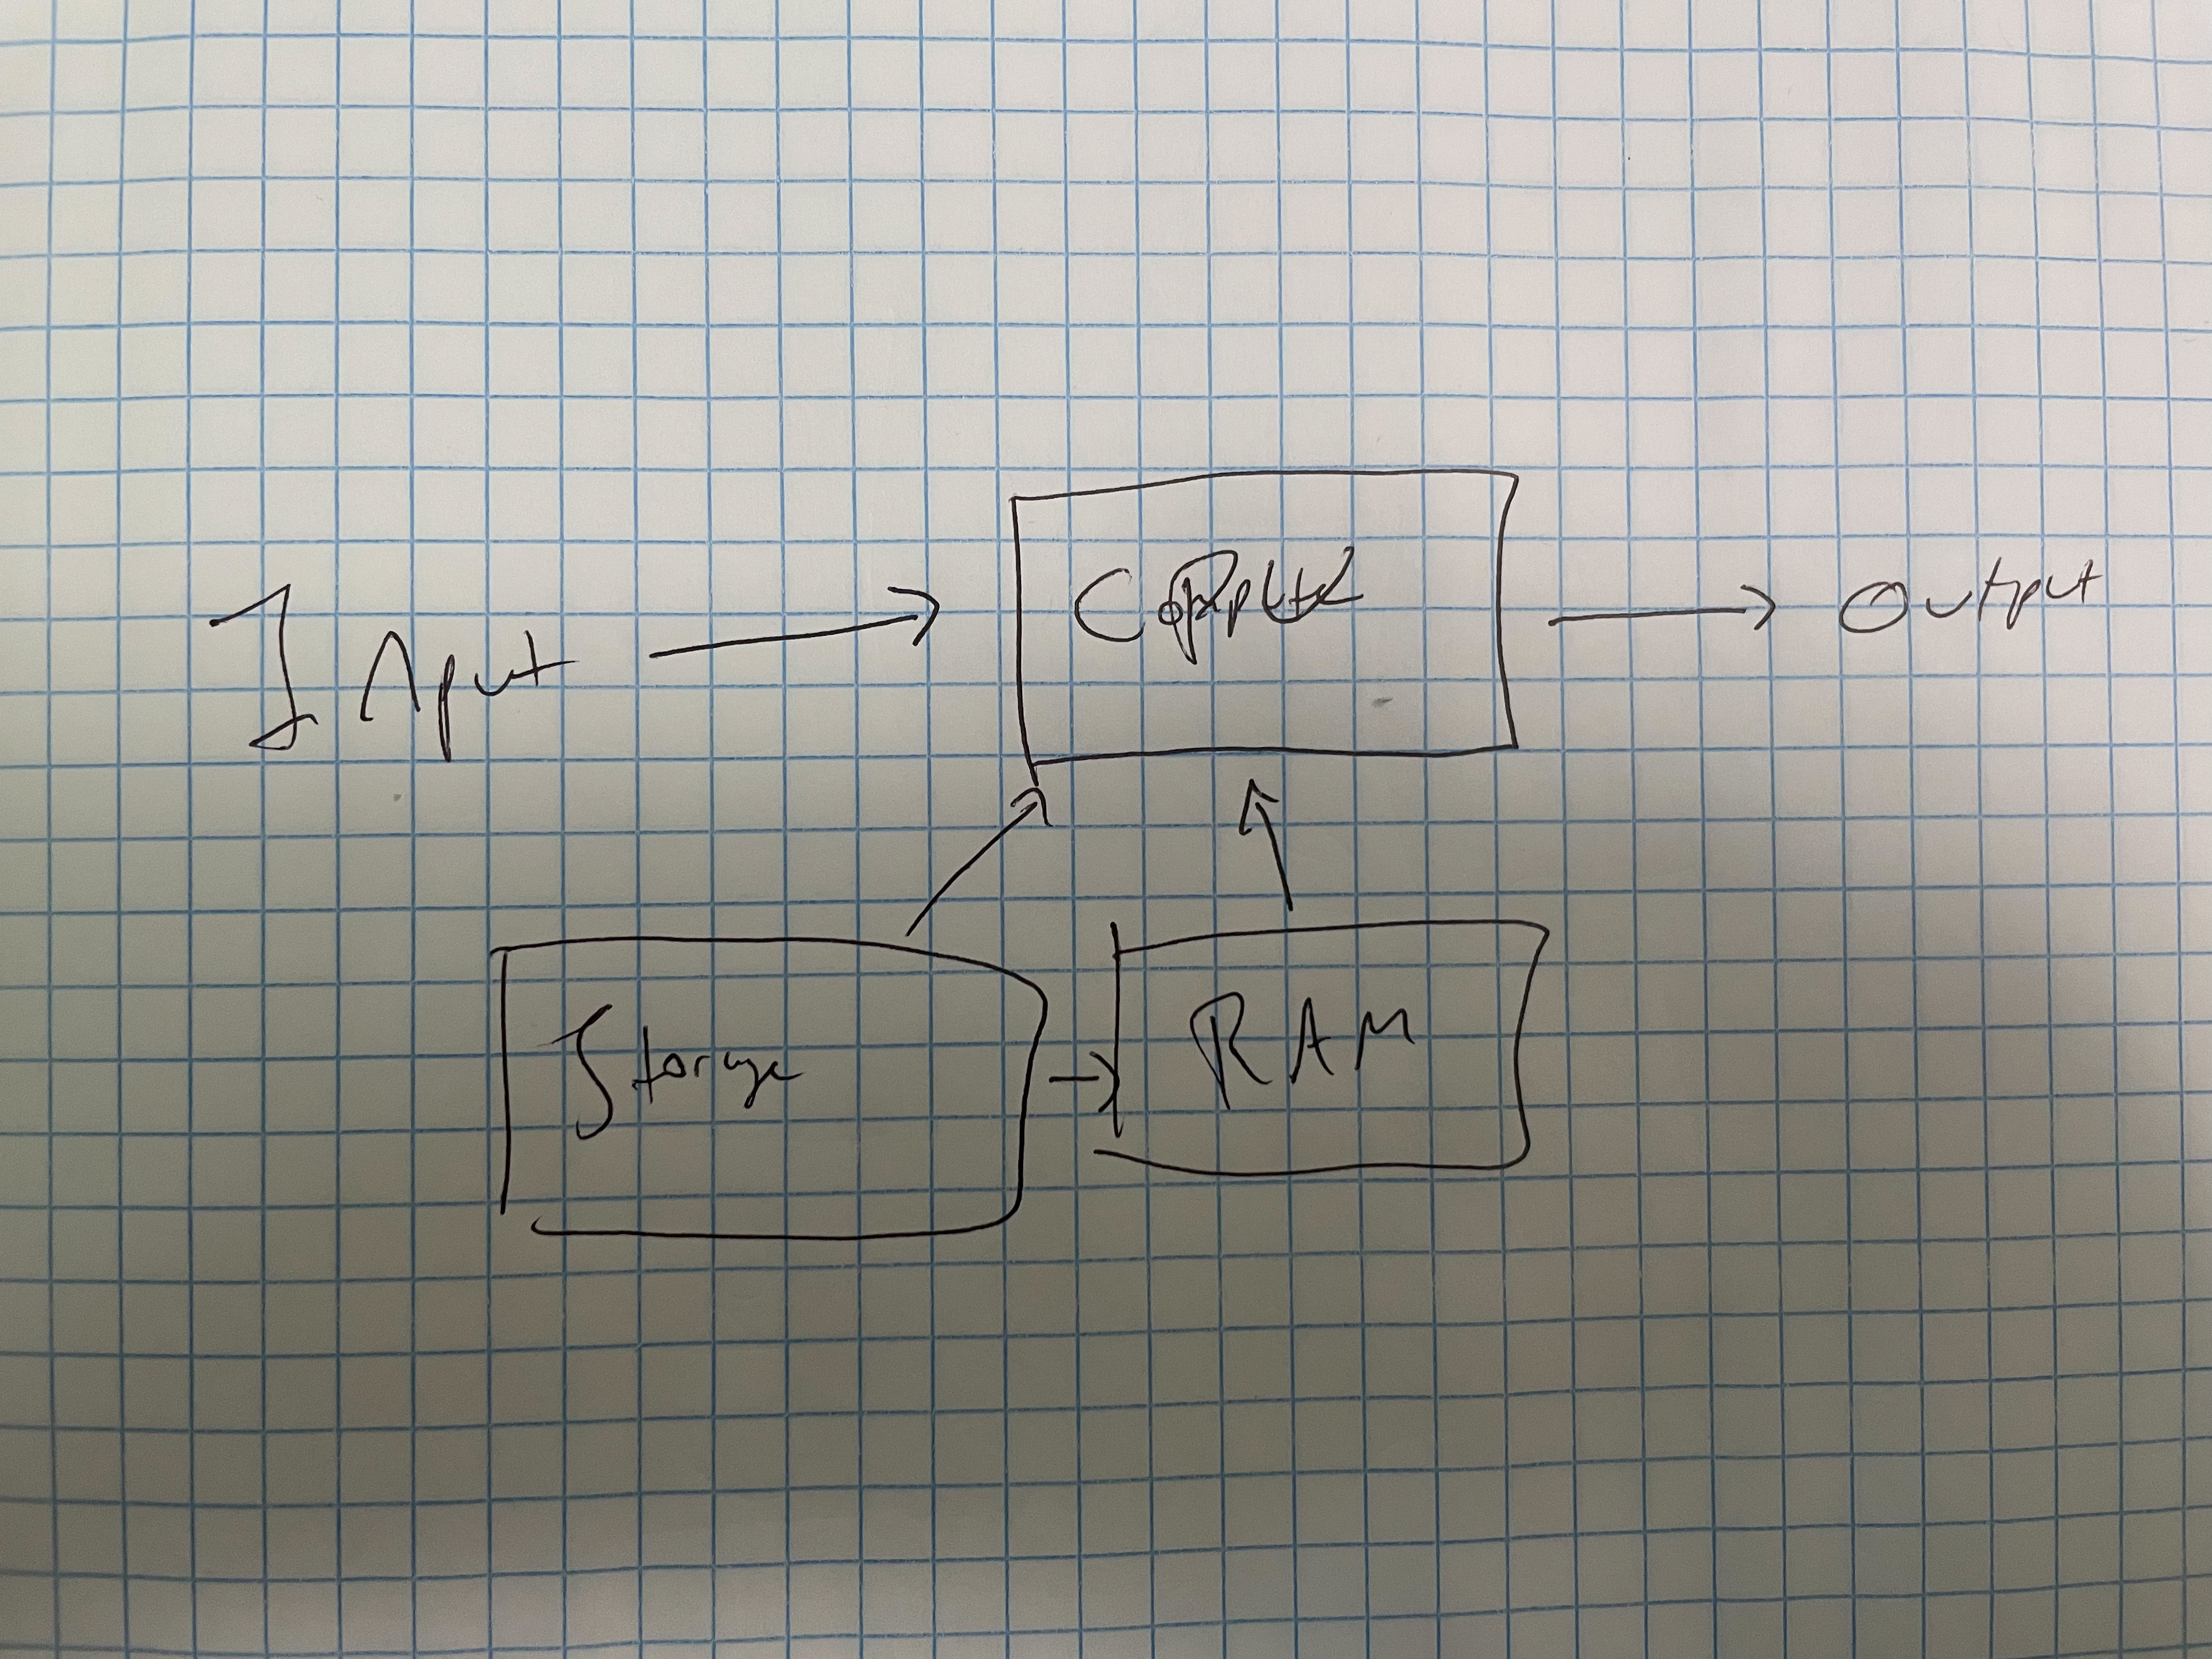 Input
Compute
Output
Storage
RAM